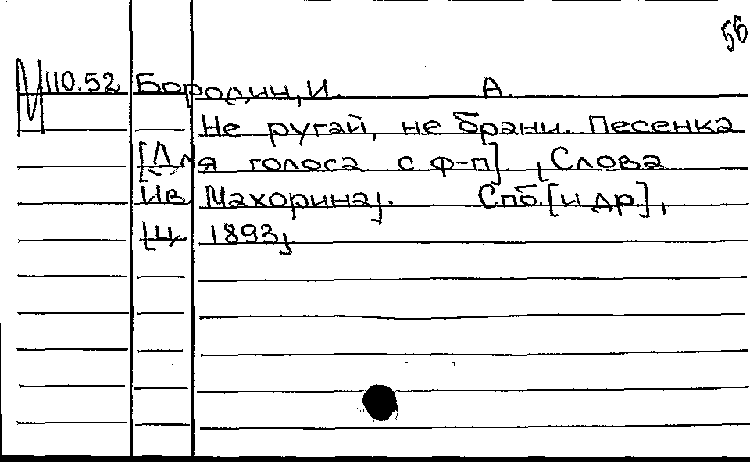 56
110.52 Бородин, И. А.
Не ругай, не брани. Песенка
[Для голоса с ф-п] [Слова
Ив Махорина].
Спб. [и др],
[ц. 1893]